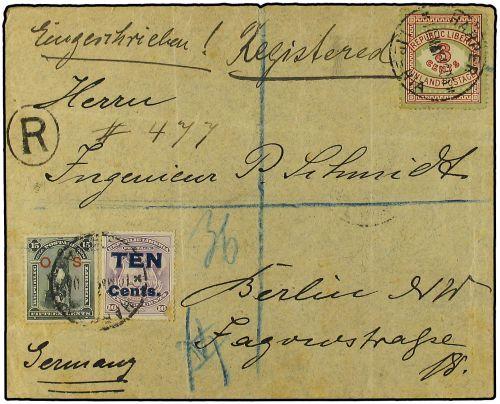 Eingeschrieben! Registered
REPUBLIC LIBERIA
3
CENTS
INLAND POSTAGE
Herrn
# 477
R
Ingenieur P. Schmidt
36
15 POSTAGE 15
O S
FIFTEEN CENTS
TEN
Cents.
Berlin NW
Jagowstraße
Germany